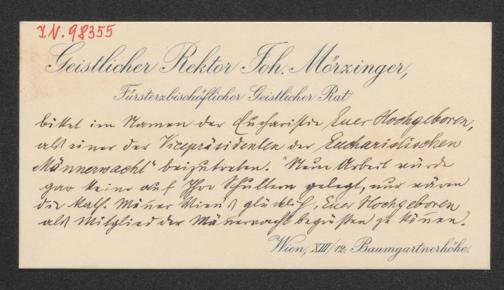 I.N. 98355
Geistlicher Rektor Joh. Mörzinger,
Fürsterzbischöflicher Geistlicher Rat
bittet im Namen der Eucharistie Euer Hochgeboren,
als einer der Vizepräsidenten der "Eucharistischen
Männerwacht" beizutreten. Neue Arbeit würde
gar keine auf Ihre Schultern gelegt, nur wären
die kath. Männer Wiens glücklich, Euer Hochgeboren
als Mitglied der Männerwacht begrüßen zu können.
Wien, XIII/12, Baumgartnerhöhe.